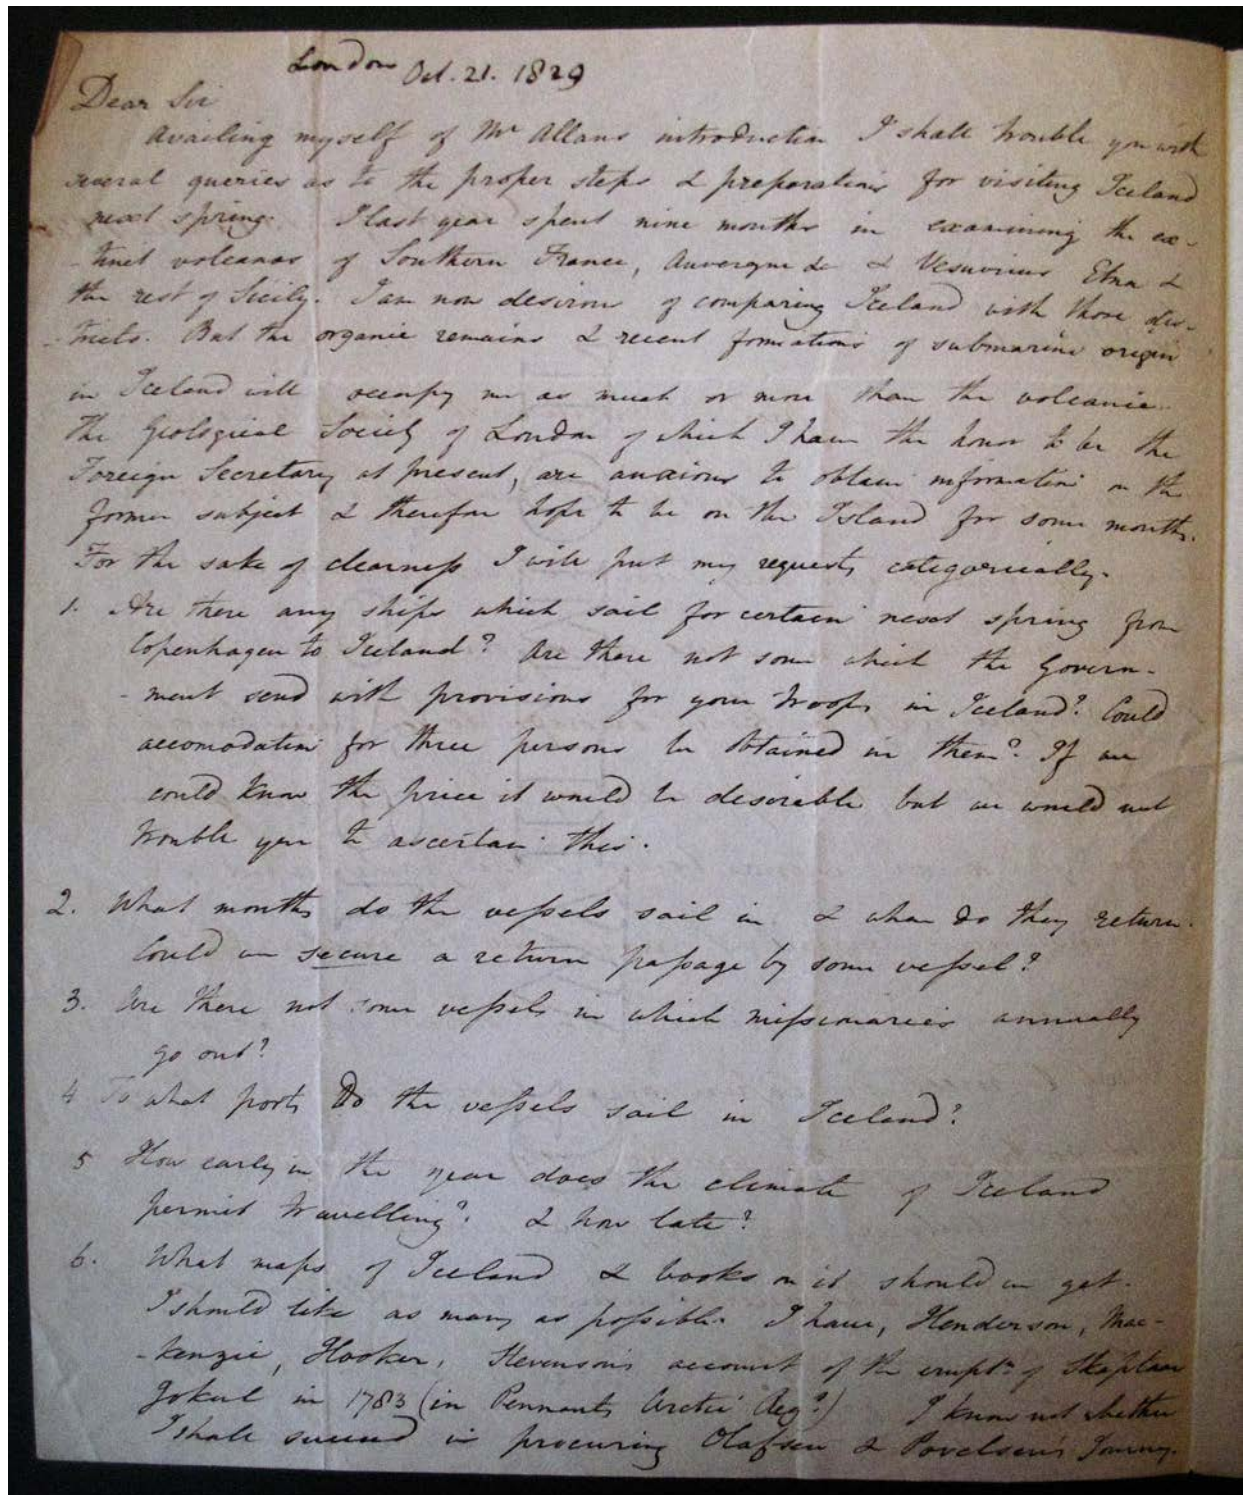 London Oct. 21. 1829
Dear Sir
Availing myself of Mr Allans introduction I shall trouble you with
several queries as to the proper steps & preparations for visiting Iceland
next spring. I last year spent nine months in examining the ex-
-tinct volcanos of Southern France, Auvergne &c & Vesuvius Etna &
the rest of Sicily. I am now desirous of comparing Iceland with those dis-
-tricts. But the organic remains & recent formations of submarine origin
in Iceland will occupy me as much or more than the volcanic.
The Geological Society of London of which I have the honor to be the
Foreign Secretary at present, are anxious to obtain information on the
former subject & therefore hope to be on the Island for some months.
For the sake of clearness I will put my requests categorically.
1. Are there any ships which sail for certain next spring from
Copenhagen to Iceland? Are there not some which the Govern-
-ment send with provisions for your troops in Iceland? Could
accomodation for three persons be obtained in them? If we
could know the price it would be desirable but we would not
trouble you to ascertain this.
2. What months do the vessels sail in & when do they return.
Could we secure a return passage by some vessel?
3. Are there not some vessels in which missionaries annually
go out?
4 To what ports do the vessels sail in Iceland?
5 How early in the year does the climate of Iceland
permit travelling? & how late?
6. What maps of Iceland & books on it should we get.
I should like as many as possible. I have, Henderson, Mac-
-kenzie, Hooker, Stevenson's account of the erupt.n of Skaptaar
Jokul in 1783 (in Pennants Arctic Reg.?) I know not whether
I shall succeed in procuring Olafsen & Povelsen's Journey.